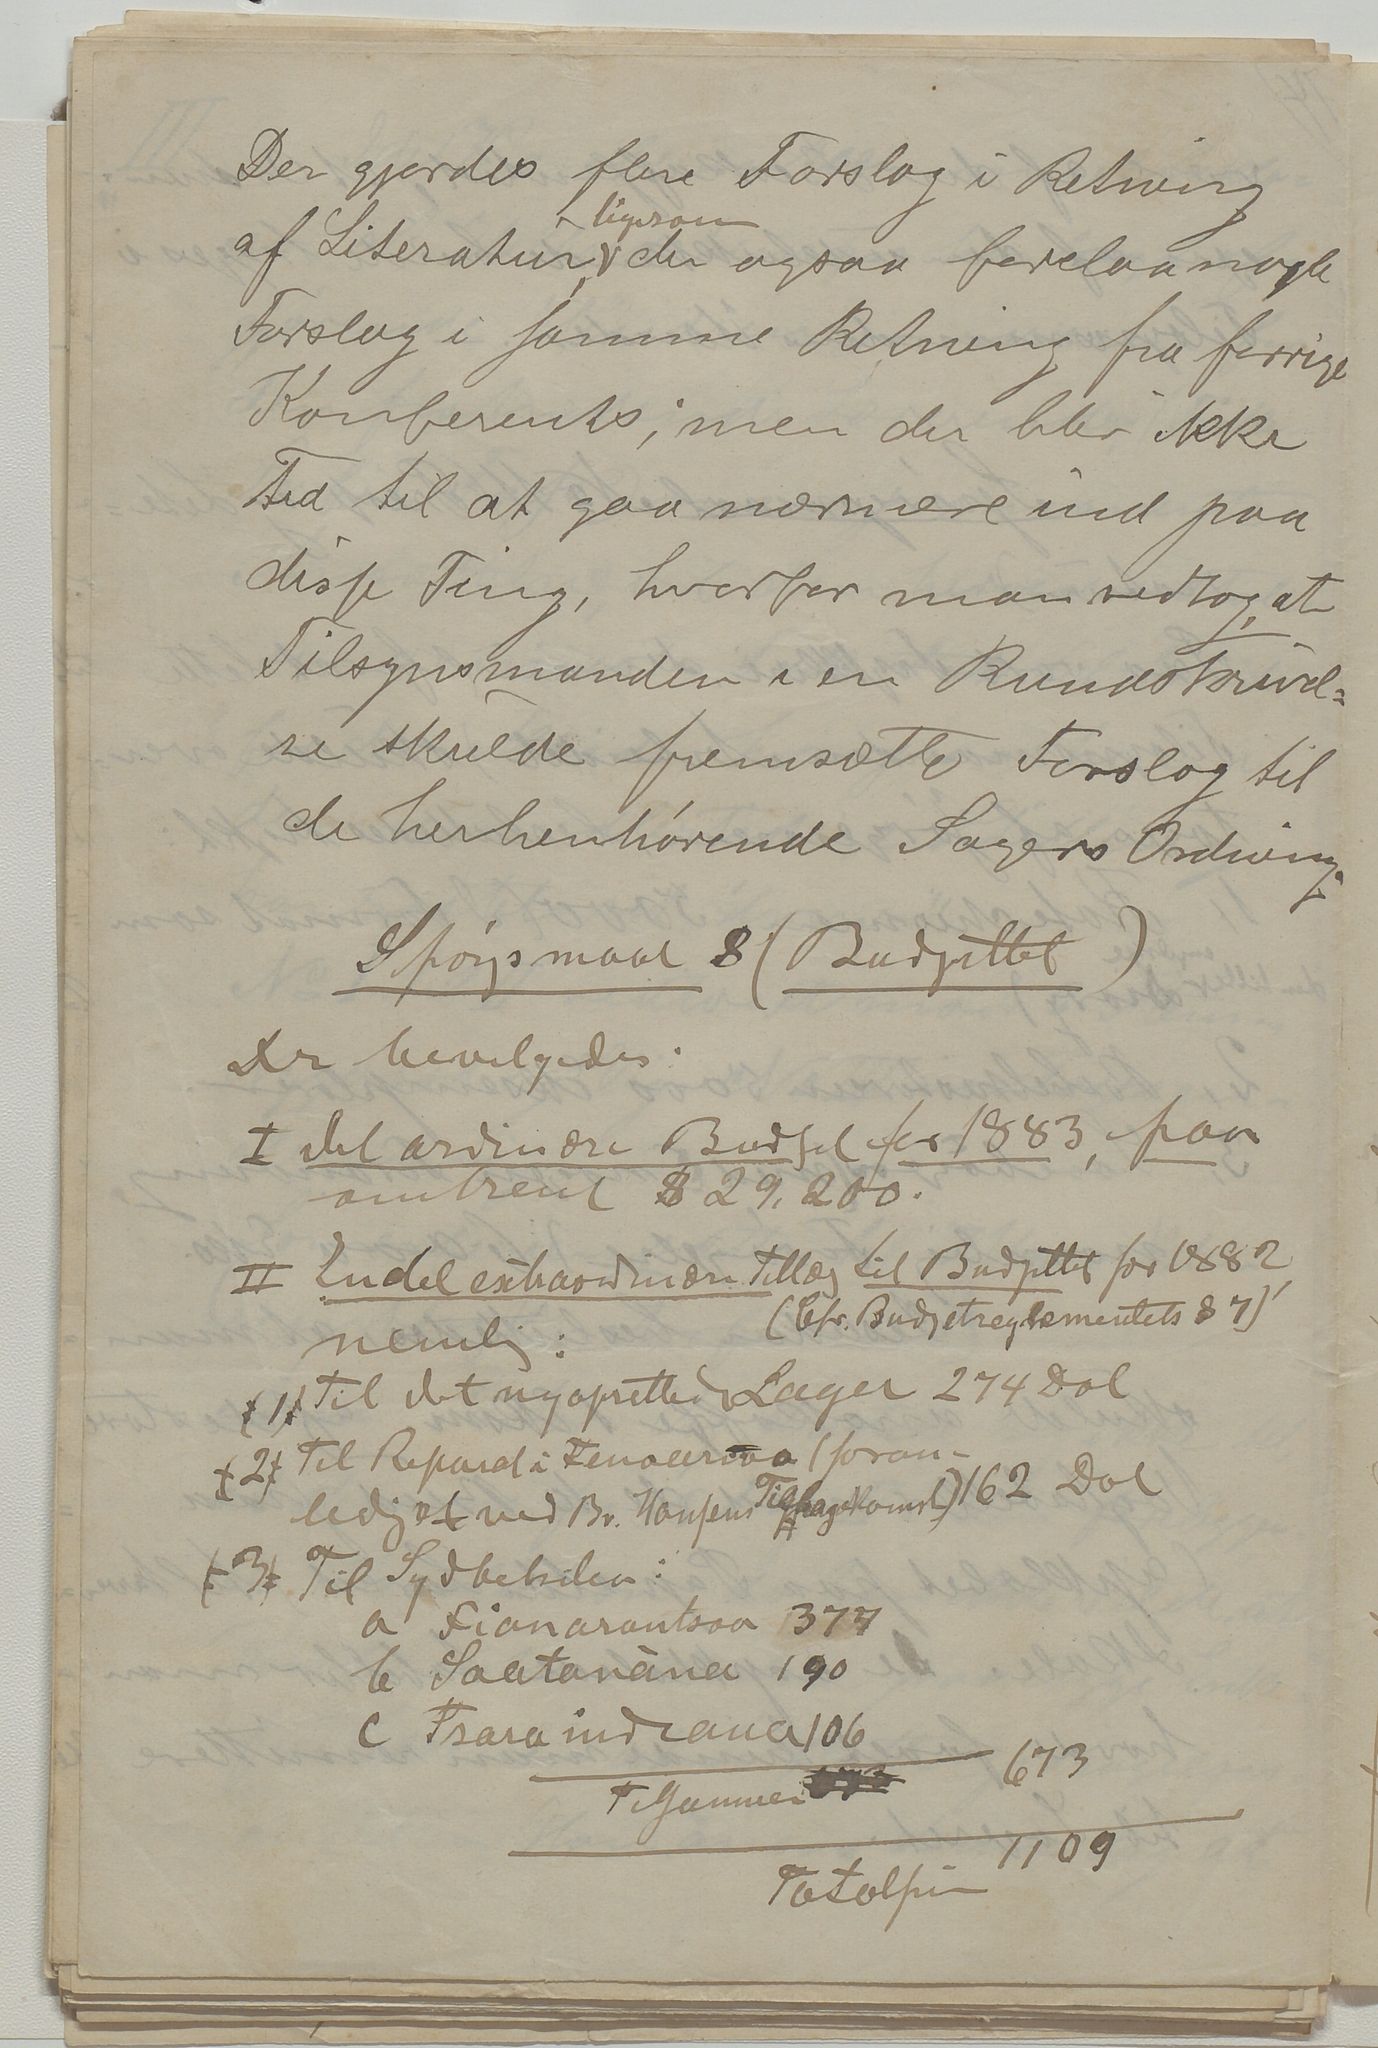 Der gjordes flere Forslag i Retning
af Literatur, ligesom der ogsaa forelaa nogle
Forslag i samme Retning fra forrige
Konferents; men der blev ikke
Tid til at gaa nærmere ind paa
disse Ting, hvorfor man vedtog, at
Tilsynsmanden i en Rundskrivel=
se skulde fremsætte Forslag til
de herhenhørende Sagers Ordning.
Spørgsmaal 8 (Budgettet)
Der bevilgedes:
I det ordinære Budget for 1883, paa
omtrent $ 29,200.
II Endel extraordinære Tillæg til Budgettet for 1882,
(Cfr. Budgetreglementets § 7)
nemlig:
(1) Til det nyoprettede Lager 274 Dol
(2) Til Reparat i Fenoarivo (foran-
lediget ved Br. Hansens Tilbagekomst) 162 Dol
(3) Til Sydbetsileo:
a Fianarantsoa 377
b Soatanàna 190
c Tsaraindrana 106
Tilsammen 673
1109
Totalsum